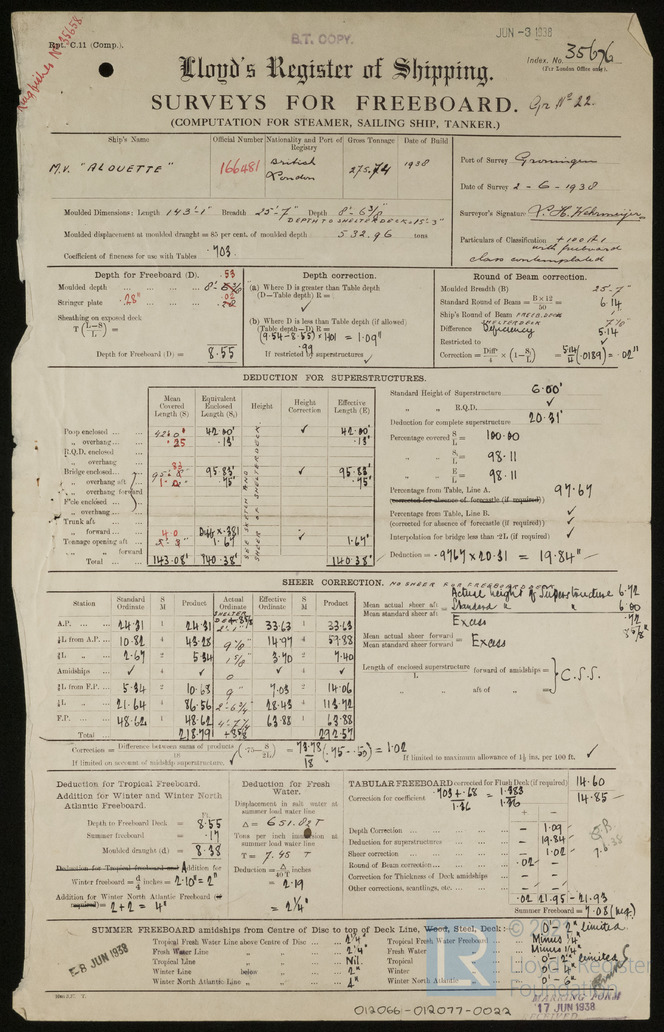 JUN -3 1938
B.T. COPY.
Rpt. C.11 (Comp.).
Index. No. 35676
(For London Office only).
Lloyd's Register of Shipping.
SURVEYS FOR FREEBOARD. Gr. No 22.
(COMPUTATION FOR STEAMER, SAILING SHIP, TANKER.)
Ship's Name Official Number Nationality and Port of Registry Gross Tonnage Date of Build
M.V. "ALOUETTE" 166481 British London 275.74 1938
Port of Survey Groningen
Date of Survey 2-6-1938
Surveyor's Signature
Particulars of Classification +100A1
with freeboard
class contemplated
Moulded Dimensions: Length 143'-1" Breadth 25'-7" Depth 8'-6 3/8"
DEPTH TO SHELTERDECK = 15'-3"
Moulded displacement at moulded draught = 85 per cent. of moulded depth 532.96 tons
Coefficient of fineness for use with Tables .703
Depth for Freeboard (D).
Moulded depth
Stringer plate
Sheathing on exposed deck
T(L-S/L) =
Depth for Freeboard (D) = 8.55
Depth correction.
(a) Where D is greater than Table depth
(D—Table depth) R =
(b) Where D is less than Table depth (if allowed)
(Table depth—D) R =
(9.54 - 8.55) × 1.101 = 1.09"
.99
If restricted by superstructures ✓
Round of Beam correction.
Moulded Breadth (B) 25'-7"
Standard Round of Beam = B×12/50 = 6.14
Ship's Round of Beam FREEB. DECK 1
SHELTERDECK 7½
Difference Deficiency 5.14
Restricted to ✓
Correction = Diff/4 × (1-S₁/L) = 5.14/4 (.0189) = .02"
DEDUCTION FOR SUPERSTRUCTURES.
Mean Covered Length (S) Equivalent Enclosed Length (S₁) Height Height Correction Effective Length (E)
Poop enclosed 42.00' ✓ 42.00'
„ overhang .25 .13' .13'
R.Q.D. enclosed
„ overhang
Bridge enclosed 95.83' ✓ 95.83'
„ overhang aft .75' .75'
„ overhang forward
F'cle enclosed
„ overhang
Trunk aft
„ forward
Tonnage opening aft 1.67 1.67'
„ „ forward
Total 143.08' 140.38' 140.38'
SEE SKETCH AND
SHEER OF SHELTERDECK
Standard Height of Superstructure 6.00'
„ „ R.Q.D. ✓
Deduction for complete superstructure 20.31'
Percentage covered S/L = 100.00
„ „ S₁/L = 98.11
„ „ E/L = 98.11
Percentage from Table, Line A. 97.67
(corrected for absence of forecastle (if required))
Percentage from Table, Line B. ✓
(corrected for absence of forecastle (if required)) ✓
Interpolation for bridge less than ·2L (if required) ✓
Deduction = .9767 × 20.31 = 19.84"
SHEER CORRECTION. NO SHEER FOR FREEBOARD DECK
Station Standard Ordinate S M Product Actual Ordinate Effective Ordinate S M Product
SHELTER DECK
A.P. 24.31 1 24.31 33.63 1 33.63
⅙L from A.P. 10.82 4 43.28 14.97 4 59.88
⅓L „ 2.67 2 5.34 3.70 2 7.40
Amidships ✓ 4 ✓ 0 ✓ 4 ✓
⅓L from F.P. 5.34 2 10.68 9" 7.03 2 14.06
⅙L „ 21.64 4 86.56 28.43 4 113.72
F.P. 48.62 1 48.62 63.88 1 63.88
Total 218.79 292.57
Actual height of Superstructure 6.72
Standard „ „ 6.00
Excess .72
Mean actual sheer aft
Mean standard sheer aft =
Mean actual sheer forward
Mean standard sheer forward = Excess
Length of enclosed superstructure forward of amidships =
L
„ aft of „ =
C.S.S.
Correction = Difference between sums of products/18 (·75—S/2L) = 73.78/18 (.75-.50) = 1.02
If limited on account of midship superstructure. ✓
If limited to maximum allowance of 1½ ins. per 100 ft. ✓
Deduction for Tropical Freeboard.
Addition for Winter and Winter North
Atlantic Freeboard.
Ft.
Depth to Freeboard Deck = 8.55
Summer freeboard = .17
Moulded draught (d) = 8.38
Deduction for Tropical freeboard and Addition for
Winter freeboard = d/4 inches = 2.10" = 2"
Addition for Winter North Atlantic Freeboard (if
required) = 2+2 = 4"
Deduction for Fresh
Water.
Displacement in salt water at
summer load water line
Δ = 651.82 T
Tons per inch immersion at
summer load water line
T = 7.45 T
Deduction = Δ/40T inches
= 2.19
= 2¼"
TABULAR FREEBOARD corrected for Flush Deck (if required) 14.60
Correction for coefficient .703+.68/1.36 = 1.383/1.36 14.85
+ -
Depth Correction - 1.09
Deduction for superstructures - 19.84
Sheer correction - 1.02
Round of Beam correction .02 -
Correction for Thickness of Deck amidships - -
Other corrections, scantlings, etc. - -
.02 21.95 -21.93
Summer Freeboard = 7.08 (neg.)
SUMMER FREEBOARD amidships from Centre of Disc to top of Deck Line, Wood, Steel, Deck: 0'-2" limited
Tropical Fresh Water Line above Centre of Disc 2¼"
Fresh Water Line „ „ 2¼"
Tropical Line „ „ Nil.
Winter Line below „ 2"
Winter North Atlantic Line „ „ 4"
Tropical Fresh Water Freeboard Minus ¼"
Fresh Water „ Minus ¼"
Tropical „ 0'-2" limited
Winter „ 0'-4"
Winter North Atlantic „ 0'-6"
8 JUN 1938
MARKING FORM
17 JUN 1938
RECEIVED
LR
Lloyd's Register
Foundation
012066-012077-0022